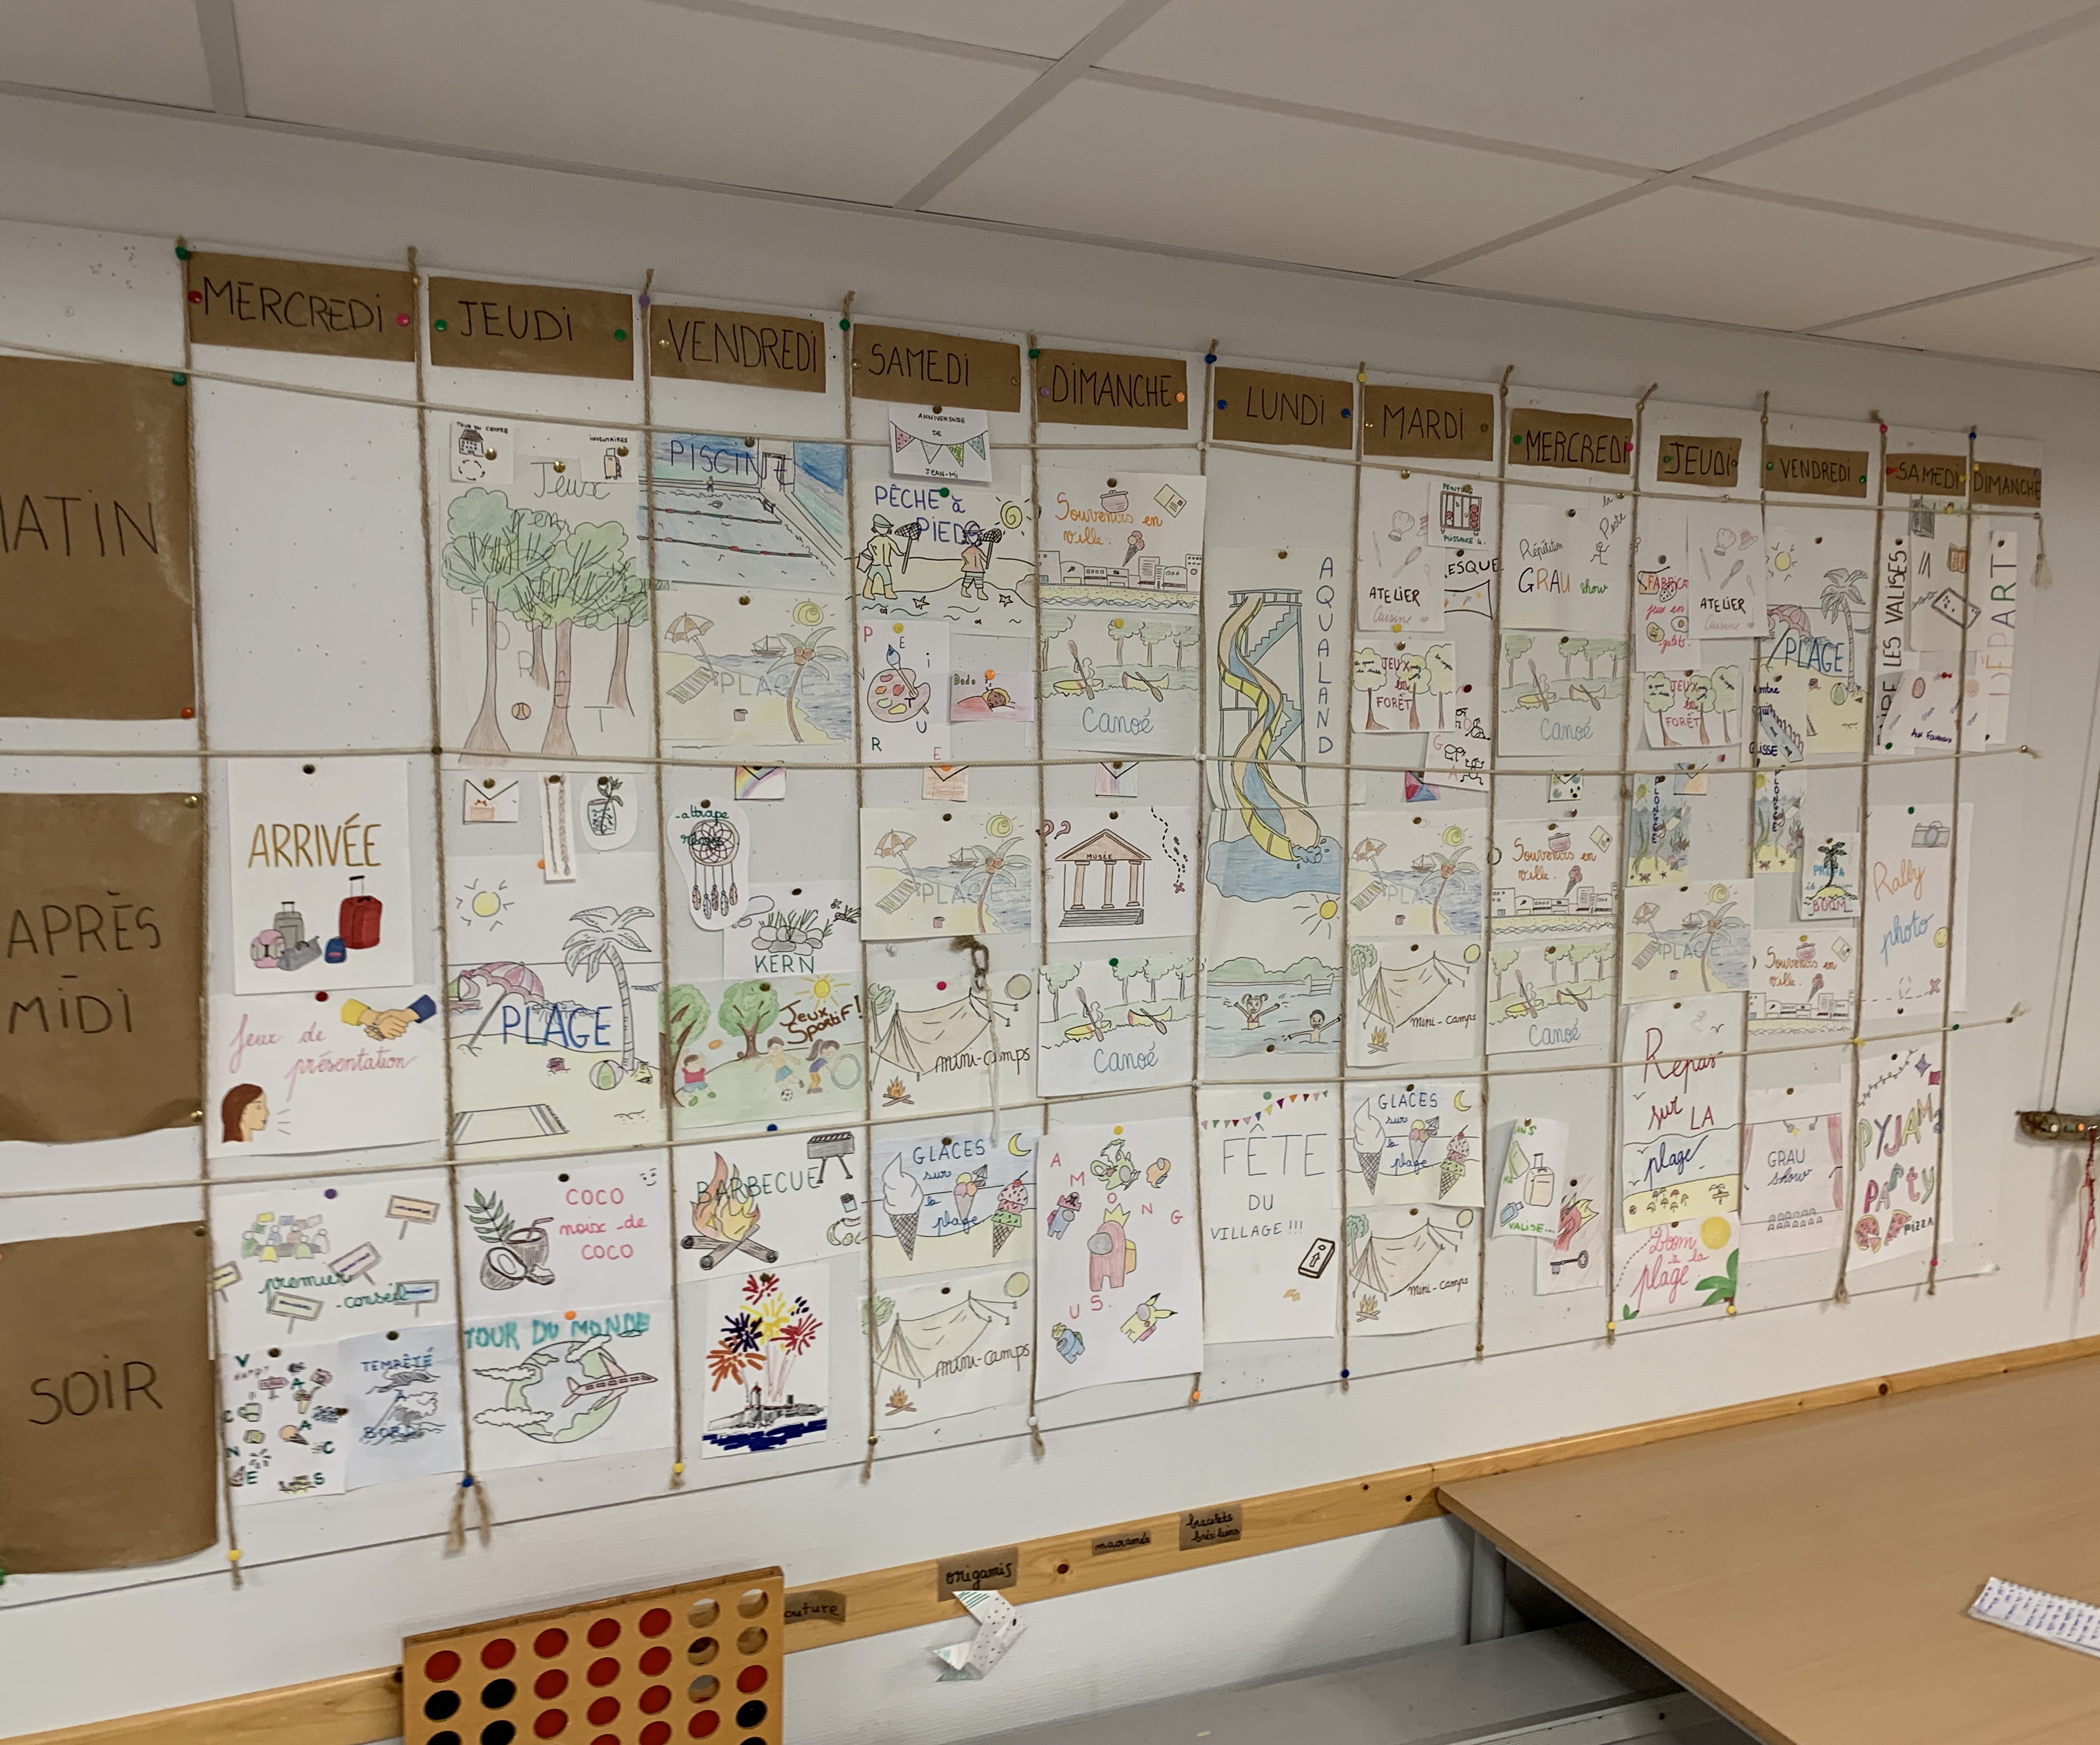 MERCREDI
JEUDI
VENDREDI
SAMEDI
DIMANCHE
LUNDI
MARDI
MERCREDI
JEUDI
VENDREDI
SAMEDI
DIMANCHE
MATIN
TOUR DU CENTRE
INVENTAIRES
Jeux
en
FORT
PISCINE
PLAGE
ANNIVERSAIRE
DE
JEAN-MI
PÊCHE à
PIEDS
PEINTURE
Dodo
Souvenirs en
ville.
Canoé
AQUALAND
ATELIER
Cuisine
PEINTURE
PUISSANCE 4
ESQUE
JEUX
en
FORÊT
Répétition
GRAU show
la
Peste
Canoé
FABRICA
jeux en
galets
ATELIER
Cuisine
JEUX
en
FORÊT
PLAGE
LES VALISES
DÉPART
APRÈS
-
MIDI
ARRIVÉE
Jeux de
présentation
PLAGE
-attrape
rêves
KERN
Jeux
Sportif!
PLAGE
mini-camps
MUSÉE
Canoé
PLAGE
mini-camps
Souvenirs en
ville.
Canoé
PLONGÉE
PLAGE
PLONGÉE
PRÉPA
BOOM
Souvenirs en
ville.
Rally
photo
SOIR
premier
-conseil
VACANCES
TEMPÊTE
À
BORD
COCO
noix-de
COCO
TOUR DU MONDE
BARBECUE
GLACES
sur
la
plage
mini-camps
AMONG
US
FÊTE
DU
VILLAGE!!!
GLACES
sur
la
plage
mini-camps
VALISE...
Repas
sur LA
plage
Boom
à la
plage
GRAU
show
PYJAMA
PARTY
PIZZA
outure
origamis
macramés
bracelets
brésiliens